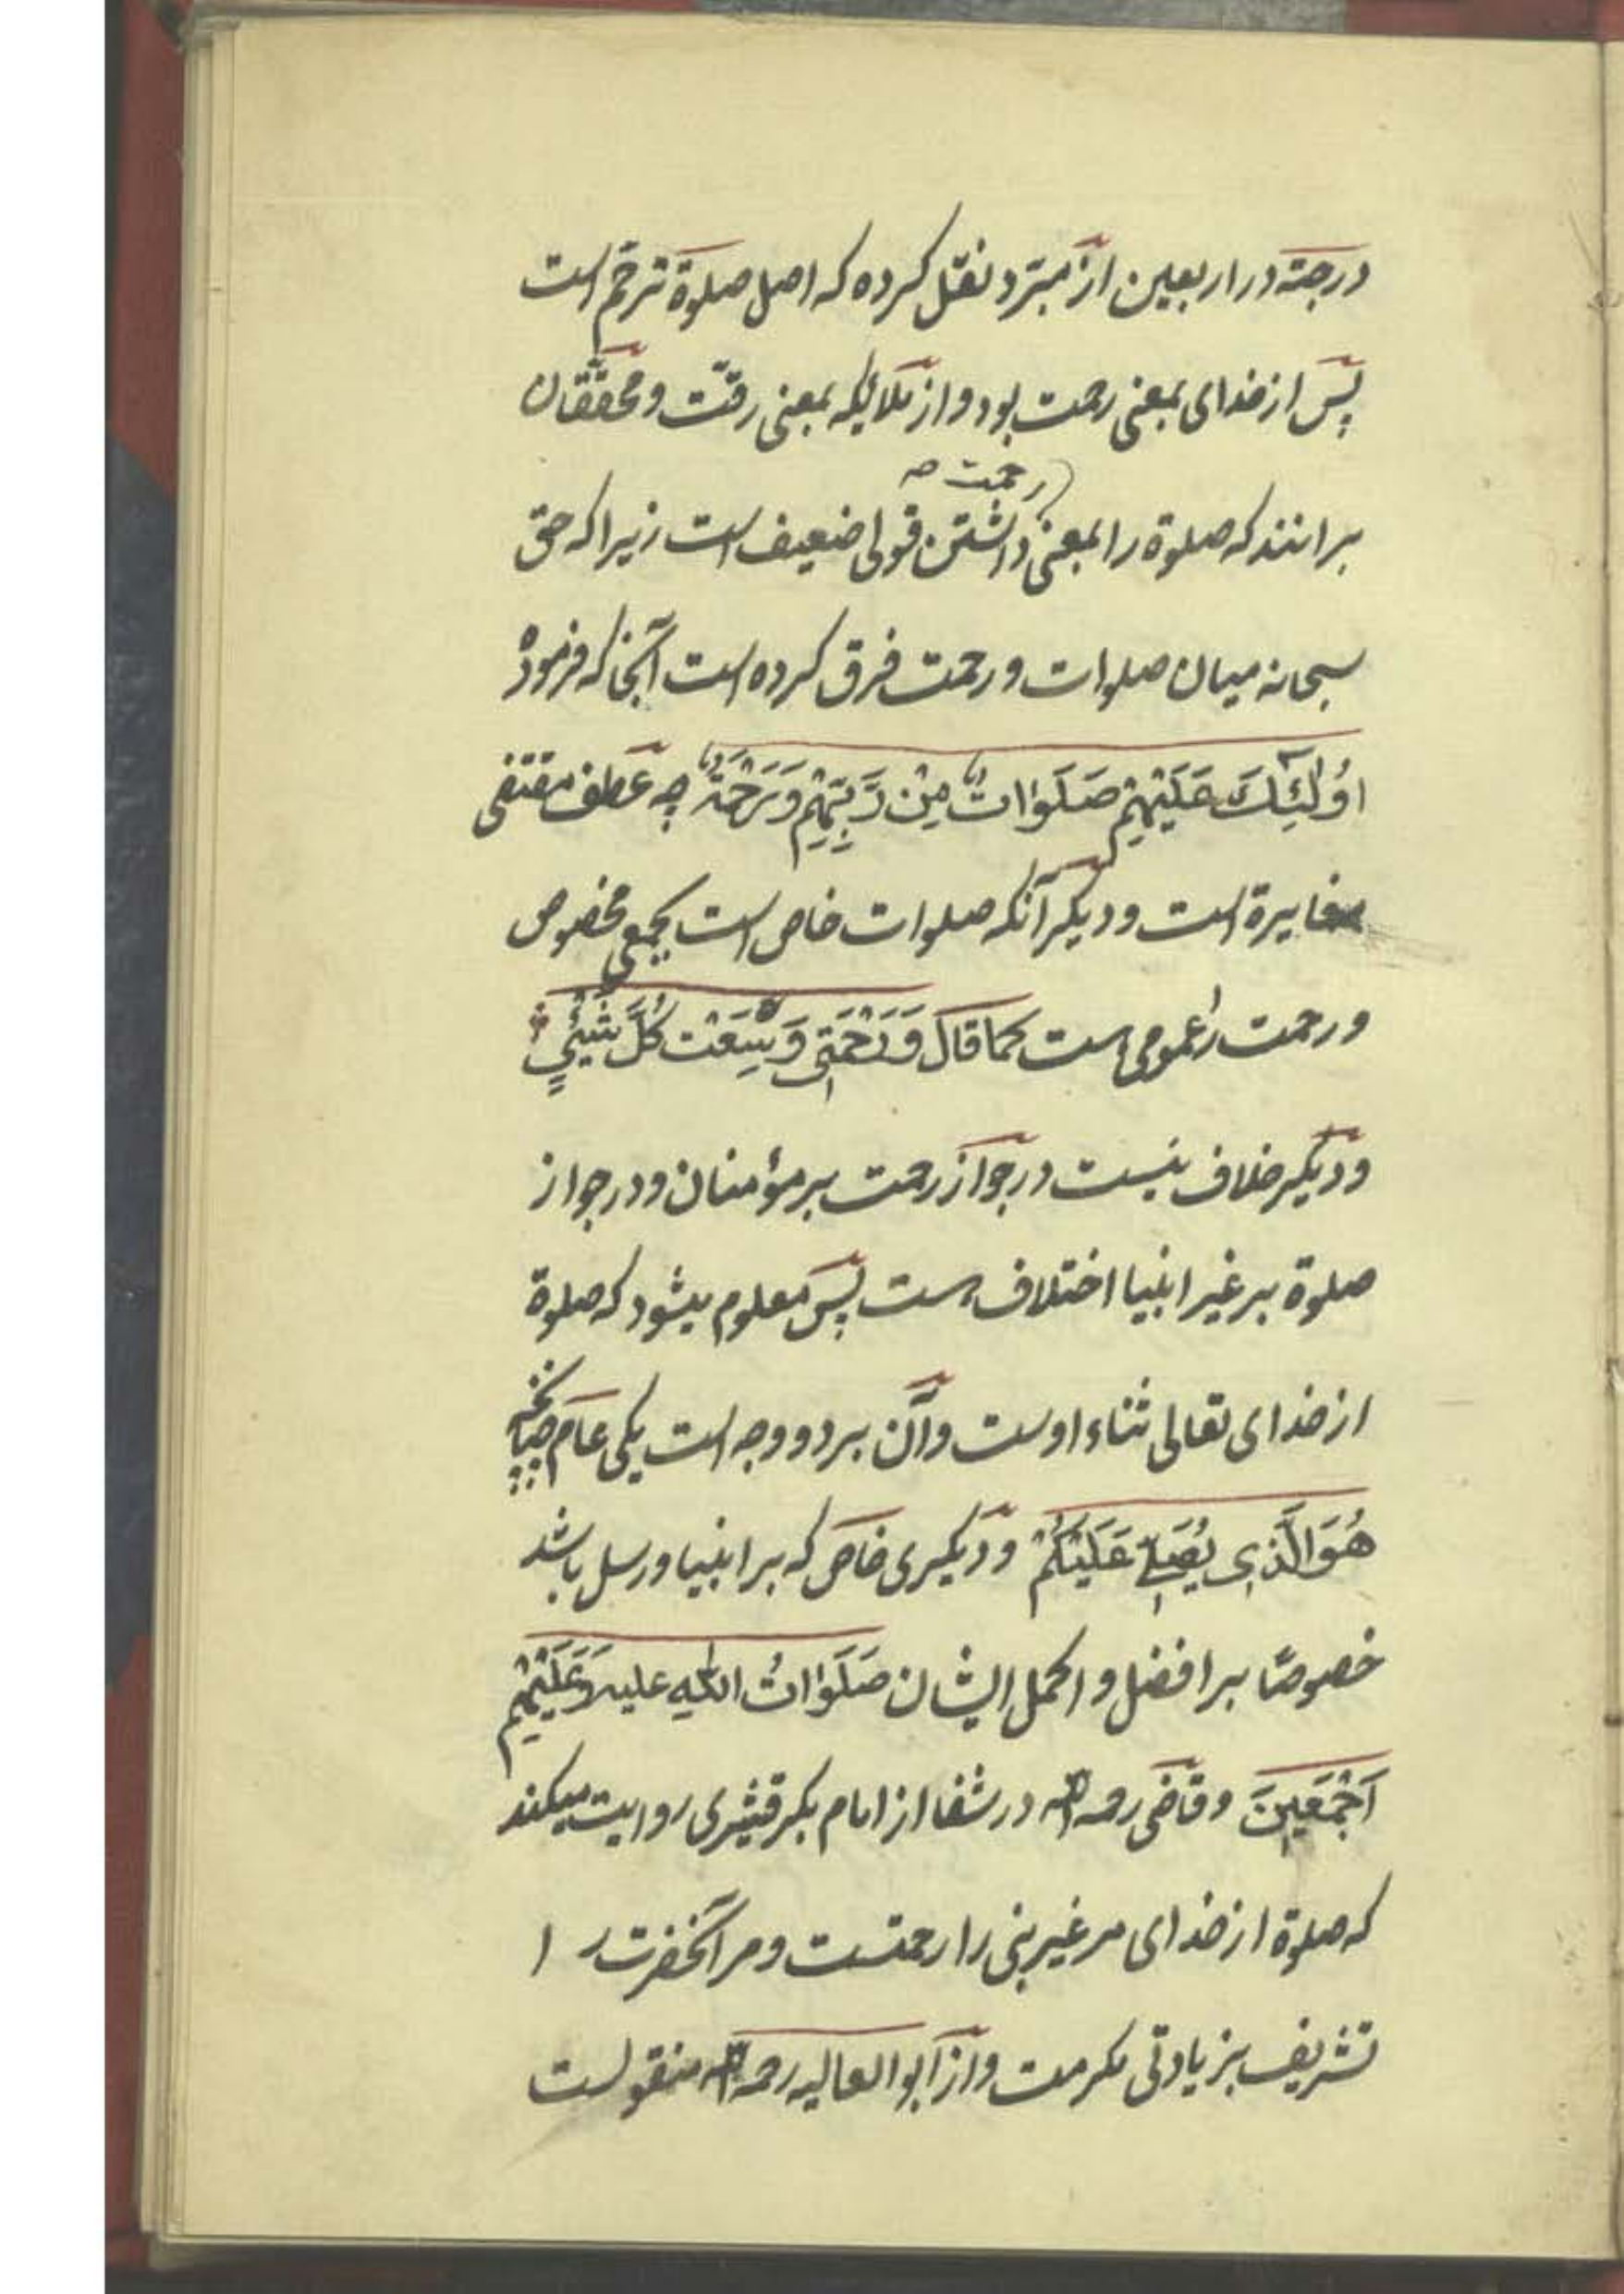 درجته در اربعین از مبرّد نقل کرده که اصل صلوة ترحّم است
پس از خدای بمعنی رحمت بود و از ملائکه بمعنی رقّت و محقّقان
برانند که صلوة را بمعنی رحمت داشتن قولی ضعیف است زیرا که حق
سبحانه میان صلوات و رحمت فرق کرده است آنجا که فرموده
اُولٰٓئِكَ عَلَيْهِمْ صَلَوَاتٌ مِنْ رَبِّهِمْ وَرَحْمَةٌ چه عطف مقتضی
مغایرة است و دیگر آنکه صلوات خاص است بجمعی مخصوص
و رحمت را عمومی است کما قال وَرَحْمَتِی وَسِعَتْ کُلَّ شَیْئٍ
و دیگر خلاف نیست در جواز رحمت بر مؤمنان و در جواز
صلوة بر غیر انبیا اختلاف است پس معلوم میشود که صلوة
از خدای تعالی ثناء اوست و آن بر دو وجه است یکی عام چنانچه
هُوَ الَّذِی یُصَلِّی عَلَیْکُمْ و دیگری خاص که بر انبیا و رسل باشد
خصوصًا بر افضل و اکمل ایشان صَلَوَاتُ اللّٰهِ علیه وَعَلَیْهِمْ
اَجْمَعِینَ و قاضی رحمه الله در شفا از امام بکر قشیری روایت میکند
که صلوة از خدای مر غیر نبی را رحمتست و مر آنحضرت را
تشریف بزیادتی مکرمت و از ابو العالیه رحمه الله منقولست